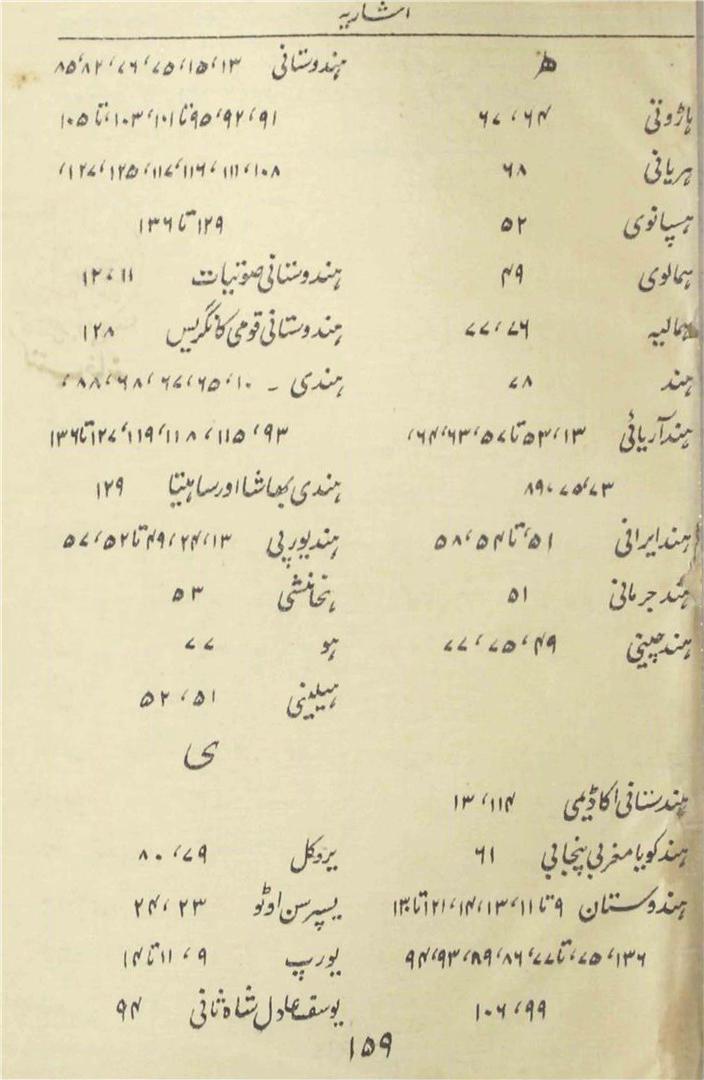 اشاریہ
ھ
ہاڑوتی ۶۴، ۶۷
ہریانی ۶۸
ہسپانوی ۵۲
ہمالوی ۴۹
ہمالیہ ۷۶، ۷۷
ہند ۷۸
ہندآریائی ۱۳، ۵۳ تا ۵۷، ۶۳، ۶۴،
۷۳، ۷۵، ۸۹
ہندایرانی ۵۱، تا ۵۴، ۵۸
ہندجرمانی ۵۱
ہندچینی ۴۹، ۷۵، ۷۷
ہندستانی اکاڈیمی ۱۱۴، ۱۳
ہندکو یا مغربی پنجابی ۶۱
ہندوستان ۹ تا ۱۱، ۱۳، ۱۴، ۱۲۱ تا ۱۳۰
۱۳۶، ۷۵، تا ۷۷، ۸۶، ۸۹، ۹۳، ۹۴
۹۹، ۱۰۶
ہندوستانی ۱۳، ۱۵، ۷۵، ۷۶، ۸۲، ۸۵
۹۱، ۹۲، ۹۵ تا ۱۰۱، ۱۰۳، تا ۱۰۵
۱۰۸، ۱۱۱، ۱۱۶، ۱۱۷، ۱۲۵، ۱۲۷،
۱۲۹ تا ۱۳۶
ہندوستانی صوتیات ۱۱، ۱۲
ہندوستانی قومی کانگریس ۱۲۸
ہندی ۔ ۱۰، ۶۵، ۶۷، ۶۸، ۸۸،
۹۳، ۱۱۵، ۱۱۸، ۱۱۹، ۱۲۷ تا ۱۳۶
ہندی بھاشا اور ساہتیا ۱۲۹
ہندیورپی ۱۳، ۲۴، ۴۹ تا ۵۲، ۵۷
ہخانشی ۵۳
ہو ۷۷
ہیلینی ۵۱، ۵۲
ی
یروکل ۷۹، ۸۰
یسپرسن اوٹو ۲۳، ۲۴
یورپ ۹، ۱۱ تا ۱۴
یوسف عادل شاہ ثانی ۹۴
۱۵۹